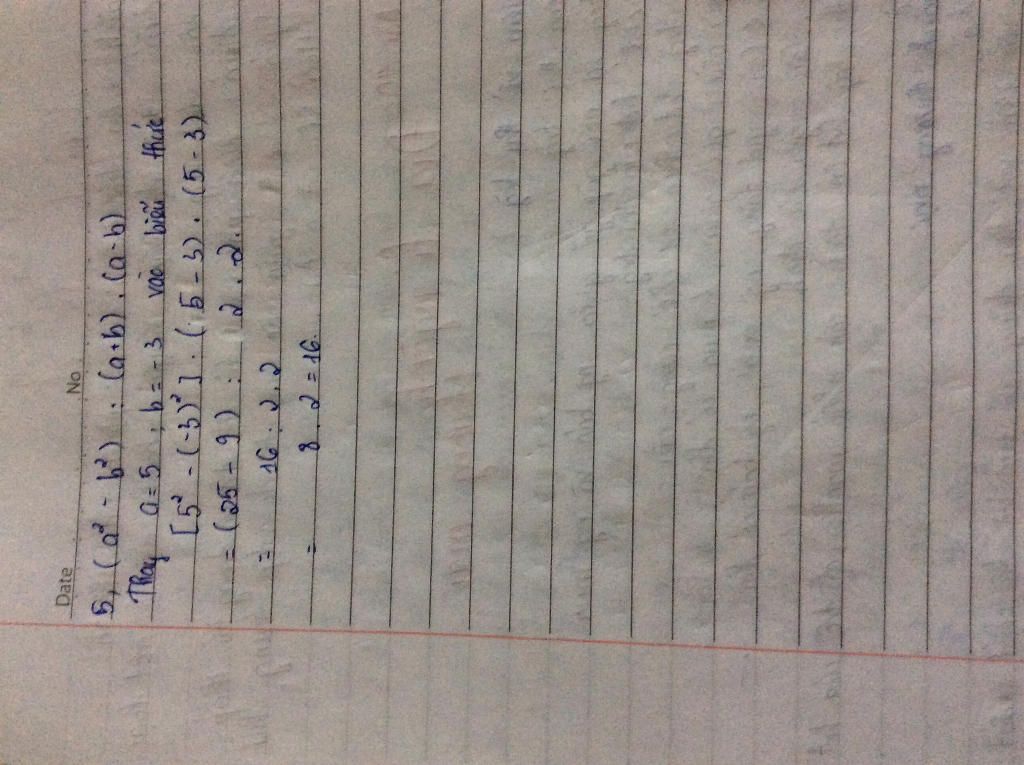 Date No
5, (a² - b²) : (a+b) . (a-b)
Thay a=5 ; b=-3 vào biểu thức
[5² - (-3)²] : (5-3) . (5-3)
= (25 - 9) : 2 . 2.
= 16 : 2 . 2
= 8 . 2 = 16